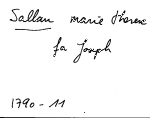 Sallan marie therese
fa Joseph
1790-11